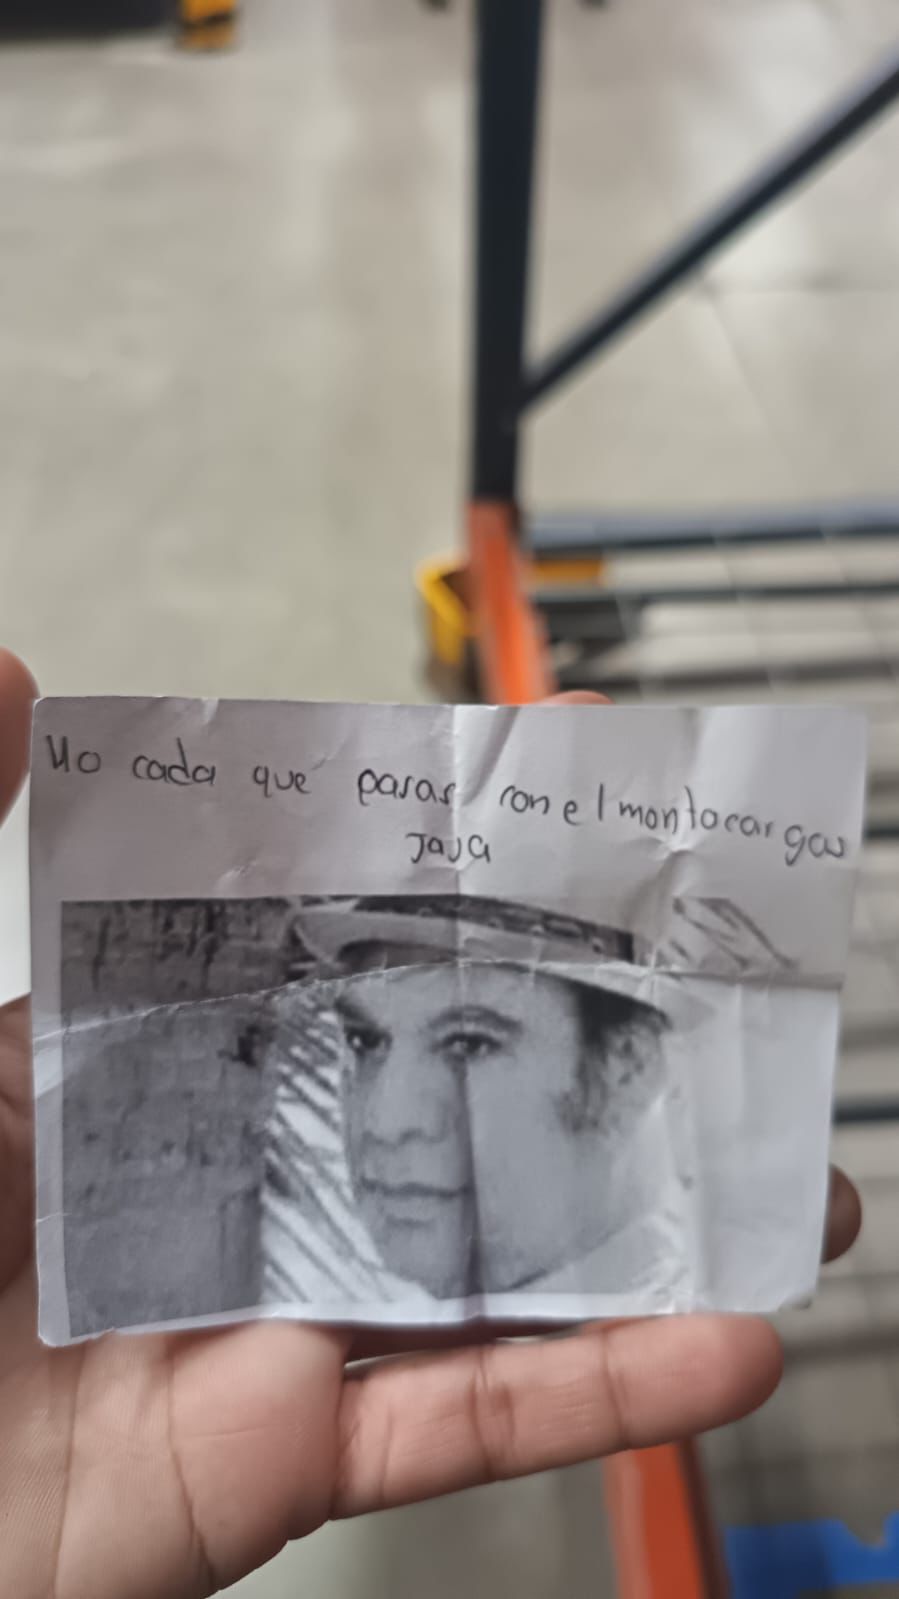 Yo cada que pasas con el montacargas
JAJA